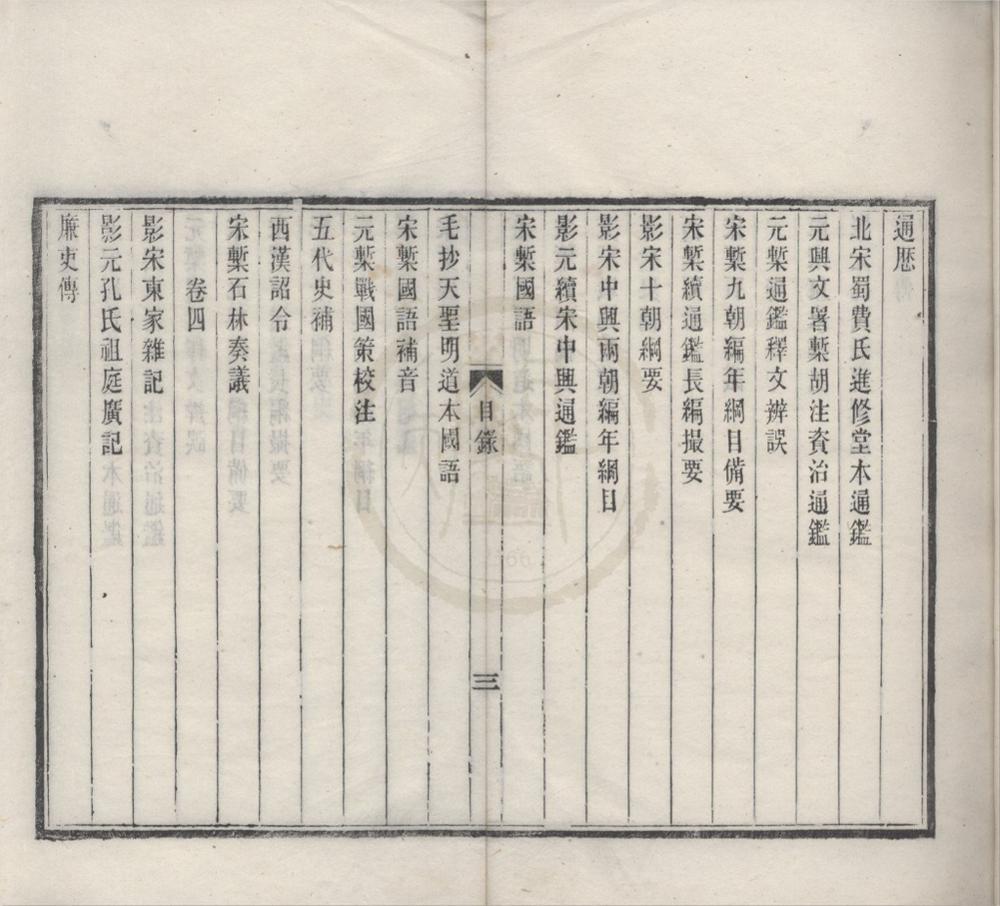 通厯
北宋蜀費氏進修堂本通鑑
元興文署槧胡注資治通鑑
元槧通鑑釋文辨誤
宋槧九朝編年綱目備要
宋槧續通鑑長編撮要
影宋十朝綱要
影宋中興兩朝編年綱目
影元續宋中興通鑑
宋槧國語
目錄
三
毛抄天聖明道本國語
宋槧國語補音
元槧戰國策校注
五代史補
西漢詔令
宋槧石林奏議
卷四
影宋東家雜記
影元孔氏祖庭廣記
廉吏傳